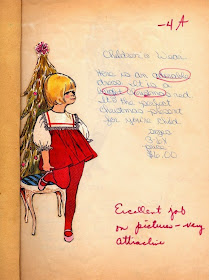 -4A
Children's Wear
Here is an adorable
dress. It is a
Christmas red
It's the perfect
Christmas present
for your child.
sizes
3-6X
price
$6.00
Excellent job
on pictures - very
attractive